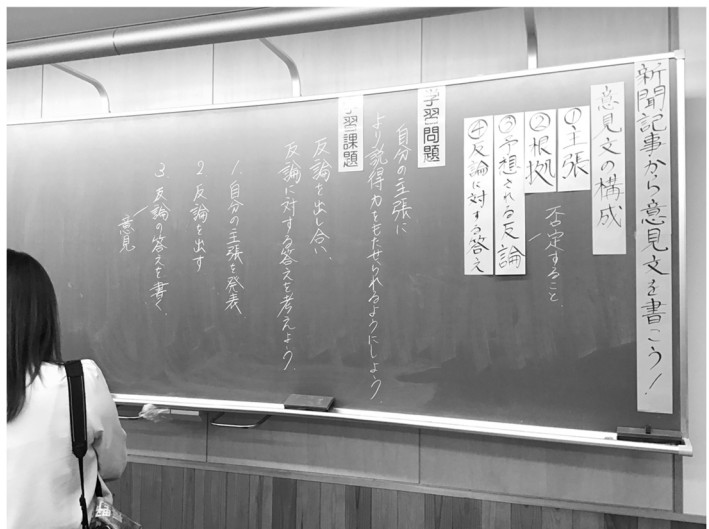 新聞記事から意見文を書こう!
意見文の構成
①主張
②根拠
否定すること
③予想される反論
④反論に対する答え
学習問題
自分の主張に
より説得力をもたせられるようにしよう。
学習課題
反論を出し合い、
反論に対する答えを考えよう。
1. 自分の主張を発表
2 反論を出す
3 反論の答えを書く。
意見